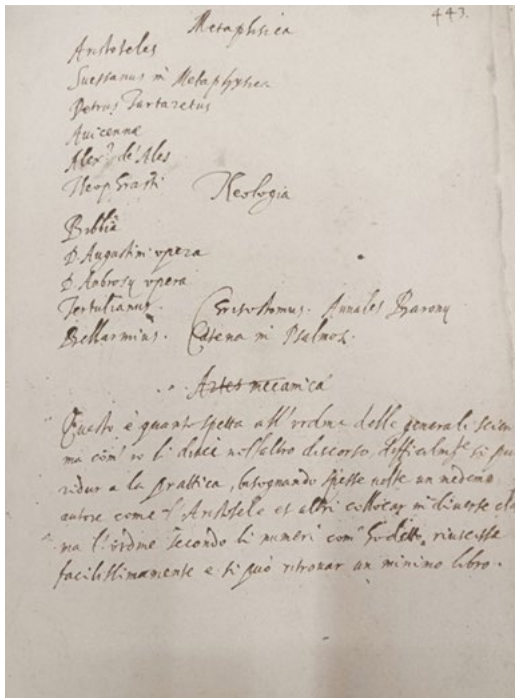 443.
Metaphisica
Aristoteles
Suessanus in Metaphysica
Petrus Tartaretus
Avicenna
Alex. de Ales
Teophrasti
Teologia
Biblia
D. Augustini opera
D. Ambrosy opera
Tertulianus. Grisostomus. Annales Barony
Bellarmius. Catena in Psalmos.
Artes mecanica
Questo è quanto spetta all'ordine delle generali scien
ma com' io li dissi nell'altro discorso, difficilmte si può
ridur a la prattica, bisognando spesse volte un medemo
autore come Aristotele et altri collocar in diverse cla
ma l'ordine secondo li numeri com' ho detto, riuscisse
facilissimamente e si può ritrovar un minimo libro.